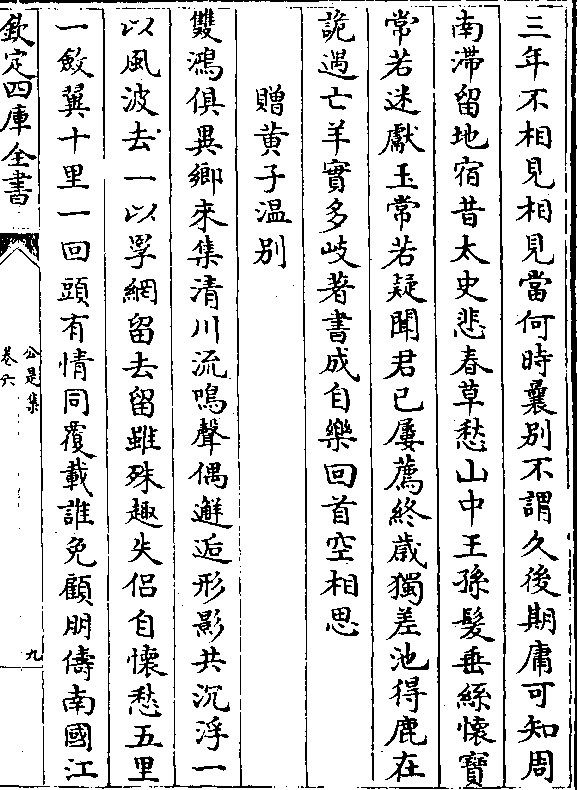 三年不相見相見當何時曩别不謂久後期庸可知周
南滯留地宿昔太史悲春草愁山中王孫髮垂絲懷寶
常若迷獻玉常若疑聞君已屢薦終歳獨差池得鹿在
詭遇亡羊實多岐著書成自樂回首空相思
贈黄子温别
雙鴻俱異鄉來集清川流鳴聲偶邂逅形影共沉浮一
以風波去一以羅網留去留雖殊趣失侣自懷愁五里
一斂翼十里一回頭有情同覆載誰免顧朋儔南國江
欽定四庫全書
公是集
卷六
九